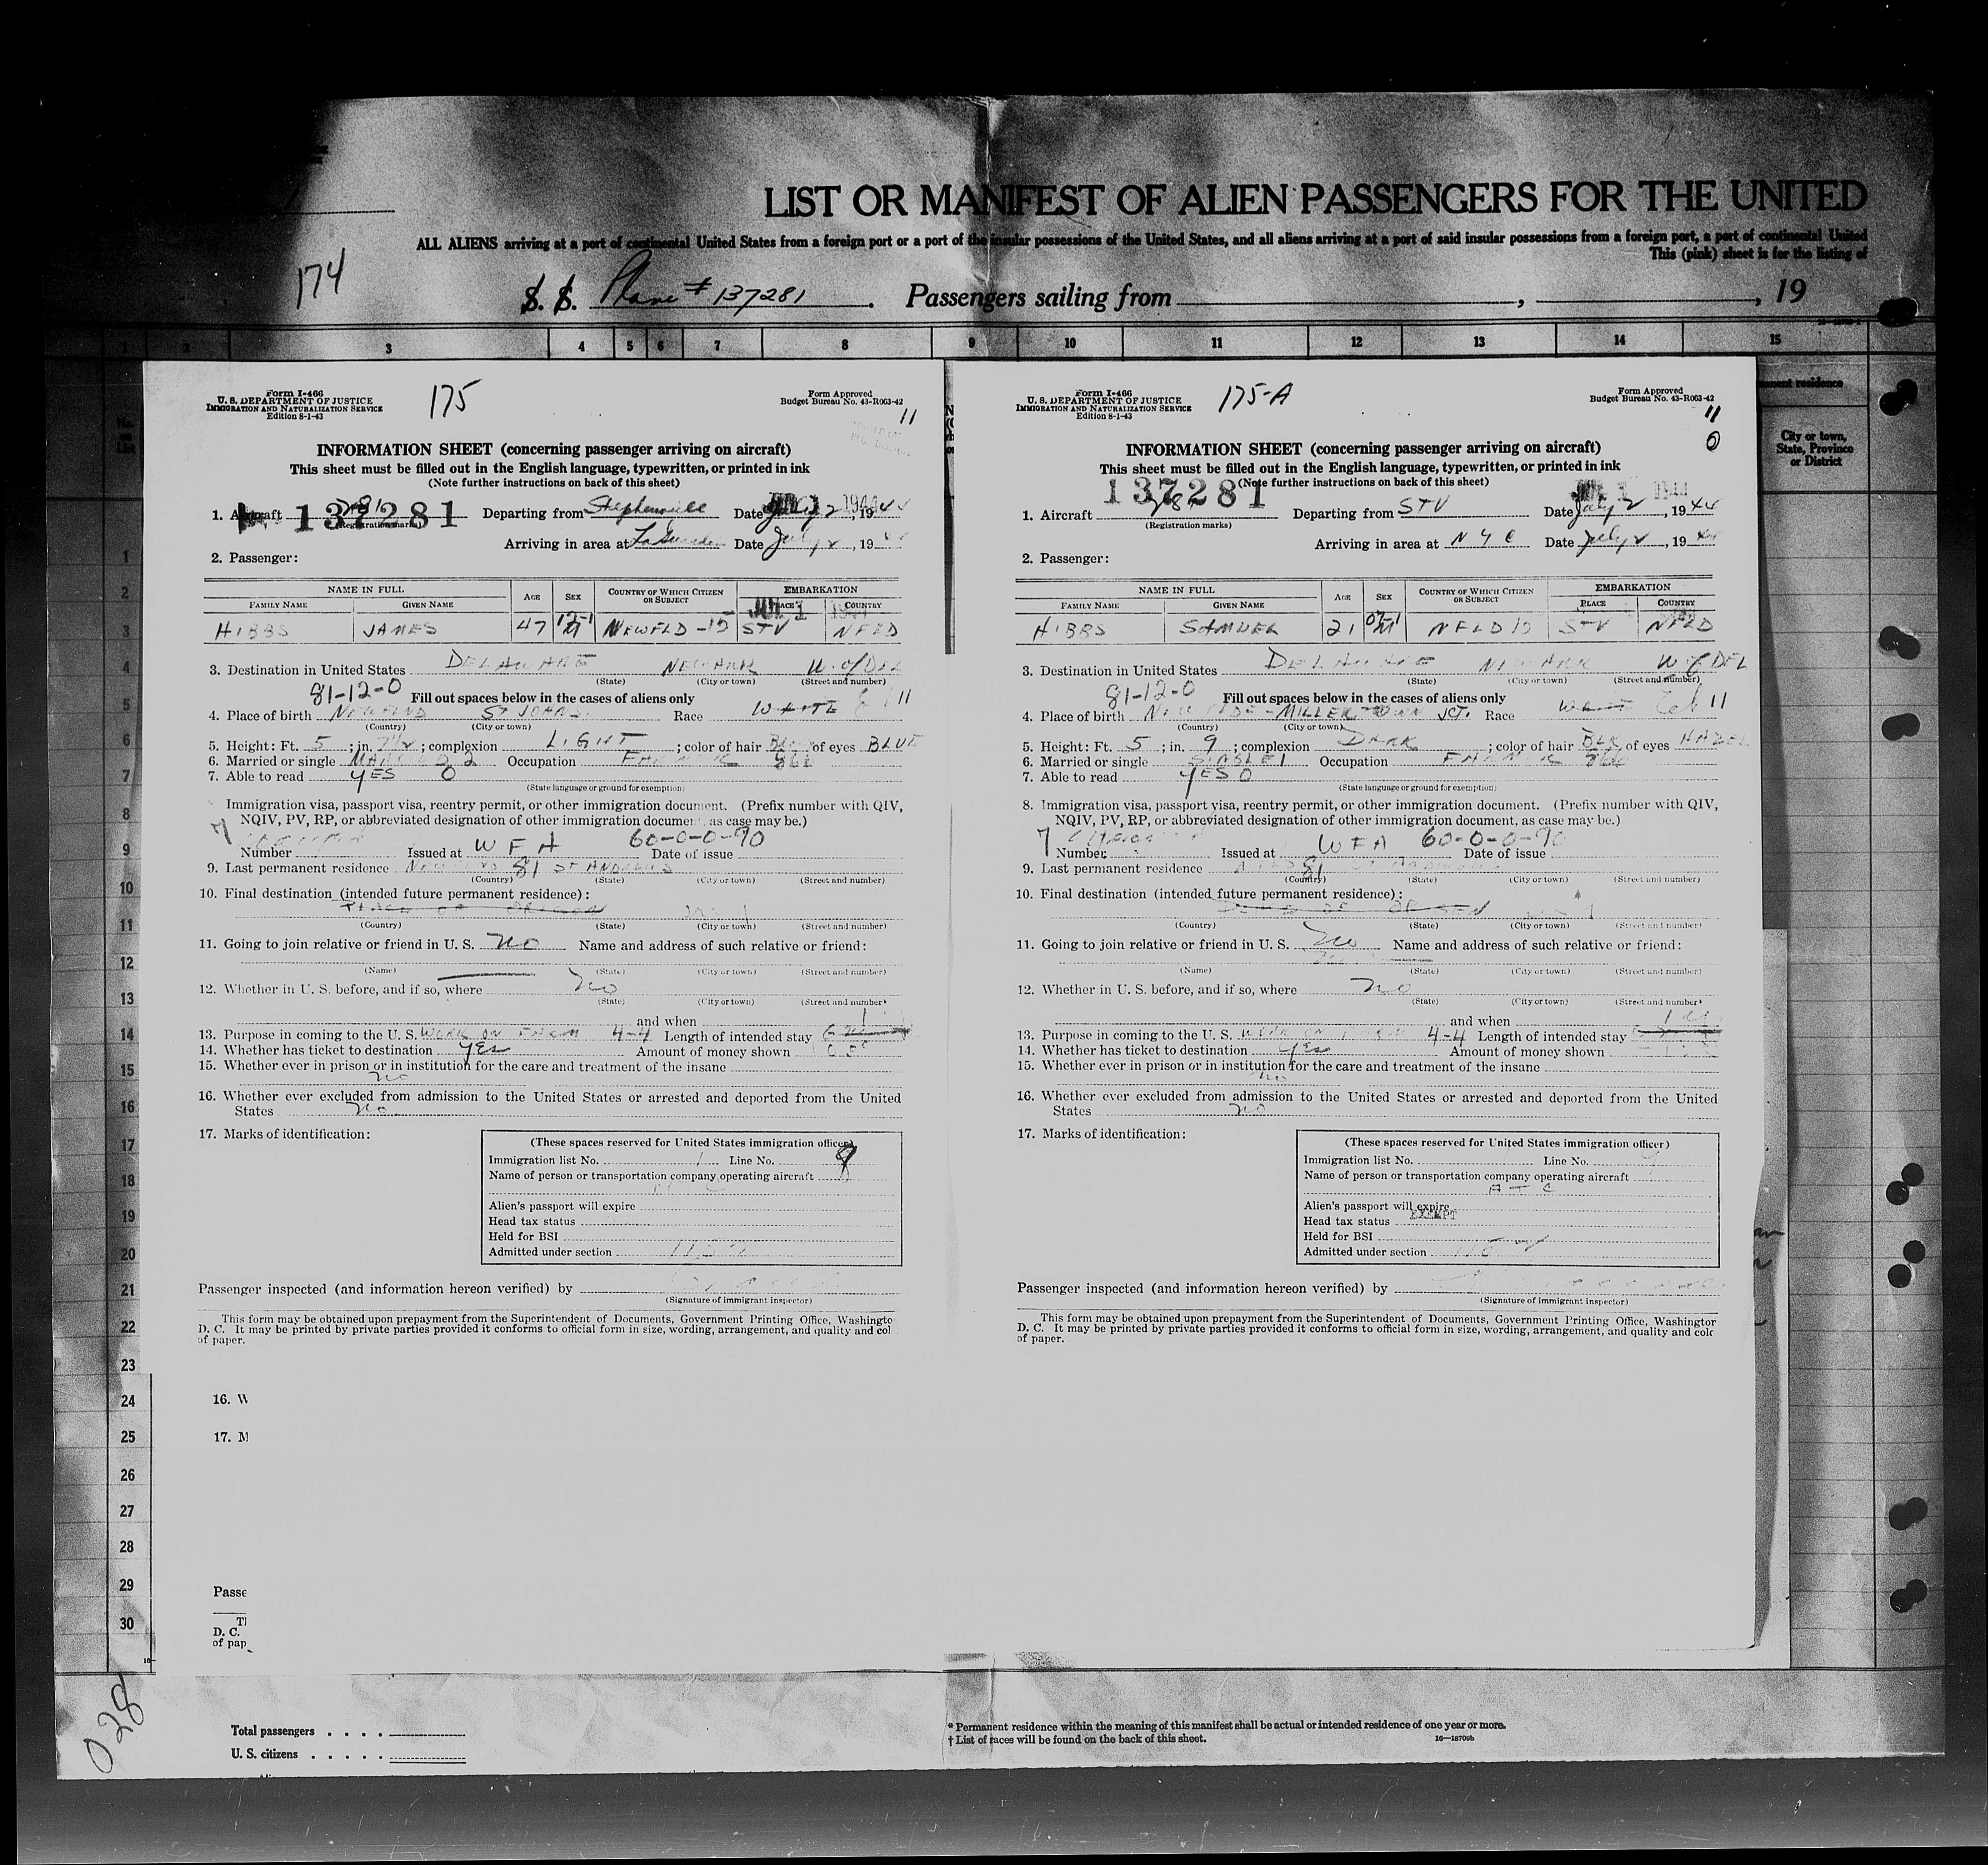 LIST OR MANIFEST OF ALIEN PASSENGERS FOR THE UNITED
ALL ALIENS arriving at a port of continental United States from a foreign port or a port of the insular possessions of the United States, and all aliens arriving at a port of said insular possessions from a foreign port, a port of continental United
This (pink) sheet is for the listing of
174
S. S. Plane # 137281. Passengers sailing from , , 19
1 2 3 4 5 6 7 8 9 10 11 12 13 14 15
Form I-466
U. S. DEPARTMENT OF JUSTICE
IMMIGRATION AND NATURALIZATION SERVICE
Edition 8-1-43
175
Form Approved
Budget Bureau No. 43-R063-42
11
INFORMATION SHEET (concerning passenger arriving on aircraft)
This sheet must be filled out in the English language, typewritten, or printed in ink
(Note further instructions on back of this sheet)
1. Aircraft 137281 Departing from Stephenville Date July 2, 1944
(Registration marks)
Arriving in area at Date July 2, 19
2. Passenger:
NAME IN FULL AGE SEX COUNTRY OF WHICH CITIZEN OR SUBJECT EMBARKATION
FAMILY NAME GIVEN NAME PLACE COUNTRY
HIBBS JAMES 47 M NEWFLD -15 STV NFLD
3. Destination in United States DELAWARE NEWARK U. of DEL
(State) (City or town) (Street and number)
81-12-0 Fill out spaces below in the cases of aliens only
4. Place of birth ST JOHNS Race WHITE 11
(Country) (City or town)
5. Height: Ft. 5 ; in. 7 1/2 ; complexion LIGHT ; color of hair of eyes BLUE
6. Married or single MARRIED 2 Occupation FARMER
7. Able to read YES 0
(State language or ground for exemption)
Immigration visa, passport visa, reentry permit, or other immigration document. (Prefix number with QIV,
NQIV, PV, RP, or abbreviated designation of other immigration document, as case may be.)
7
Number Issued at WFA 60-0-0-90 Date of issue
9. Last permanent residence 81 ST ANDREWS
(Country) (State) (City or town) (Street and number)
10. Final destination (intended future permanent residence):
PLACE OF ORIGIN
(Country) (State) (City or town) (Street and number)
11. Going to join relative or friend in U. S. no Name and address of such relative or friend:
(Name) (State) (City or town) (Street and number)
12. Whether in U. S. before, and if so, where no
(State) (City or town) (Street and number)
and when
13. Purpose in coming to the U. S. WORK ON FARM 4-4 Length of intended stay
14. Whether has ticket to destination yes Amount of money shown
15. Whether ever in prison or in institution for the care and treatment of the insane
no
16. Whether ever excluded from admission to the United States or arrested and deported from the United
States no
17. Marks of identification:
(These spaces reserved for United States immigration officer)
Immigration list No. 1 Line No.
Name of person or transportation company operating aircraft
Alien's passport will expire
Head tax status
Held for BSI
Admitted under section
Passenger inspected (and information hereon verified) by
(Signature of immigrant inspector)
This form may be obtained upon prepayment from the Superintendent of Documents, Government Printing Office, Washingto
D. C. It may be printed by private parties provided it conforms to official form in size, wording, arrangement, and quality and col
of paper.
16. W
17. M
Passe
T
D. C.
of pap
Form I-466
U. S. DEPARTMENT OF JUSTICE
IMMIGRATION AND NATURALIZATION SERVICE
Edition 8-1-43
175-A
Form Approved
Budget Bureau No. 43-R063-42
11
0
INFORMATION SHEET (concerning passenger arriving on aircraft)
This sheet must be filled out in the English language, typewritten, or printed in ink
(Note further instructions on back of this sheet)
137281
1. Aircraft 281 Departing from STV Date July 2, 1944
(Registration marks)
Arriving in area at NYC Date July 2, 1944
2. Passenger:
NAME IN FULL AGE SEX COUNTRY OF WHICH CITIZEN OR SUBJECT EMBARKATION
FAMILY NAME GIVEN NAME PLACE COUNTRY
HIBBS SAMUEL 21 M NFLD 15 STV NFLD
3. Destination in United States DELAWARE NEWARK U of DEL
(State) (City or town) (Street and number)
81-12-0 Fill out spaces below in the cases of aliens only
4. Place of birth MILLERTOWN JCT. Race 11
(Country) (City or town)
5. Height: Ft. 5 ; in. 9 ; complexion DARK ; color of hair BLK of eyes HAZEL
6. Married or single SINGLE 1 Occupation FARMER
7. Able to read YES 0
(State language or ground for exemption)
8. Immigration visa, passport visa, reentry permit, or other immigration document. (Prefix number with QIV,
NQIV, PV, RP, or abbreviated designation of other immigration document, as case may be.)
7
Number Issued at WFA 60-0-0-90 Date of issue
9. Last permanent residence 81
(Country) (State) (City or town) (Street and number)
10. Final destination (intended future permanent residence):
(Country) (State) (City or town) (Street and number)
11. Going to join relative or friend in U. S. no Name and address of such relative or friend:
(Name) (State) (City or town) (Street and number)
12. Whether in U. S. before, and if so, where no
(State) (City or town) (Street and number)
and when
13. Purpose in coming to the U. S. WORK ON FARM 4-4 Length of intended stay
14. Whether has ticket to destination yes Amount of money shown
15. Whether ever in prison or in institution for the care and treatment of the insane
no
16. Whether ever excluded from admission to the United States or arrested and deported from the United
States no
17. Marks of identification:
(These spaces reserved for United States immigration officer)
Immigration list No. Line No.
Name of person or transportation company operating aircraft
ATC
Alien's passport will expire
Head tax status EXEMPT
Held for BSI
Admitted under section
Passenger inspected (and information hereon verified) by
(Signature of immigrant inspector)
This form may be obtained upon prepayment from the Superintendent of Documents, Government Printing Office, Washington
D. C. It may be printed by private parties provided it conforms to official form in size, wording, arrangement, and quality and colo
of paper.
permanent residence
City or town,
State, Province
or District
1
2
3
4
5
6
7
8
9
10
11
12
13
14
15
16
17
18
19
20
21
22
23
24
25
26
27
28
29
30
028
Total passengers . . . .
U. S. citizens . . . . .
* Permanent residence within the meaning of this manifest shall be actual or intended residence of one year or more.
† List of races will be found on the back of this sheet.
16—18709b